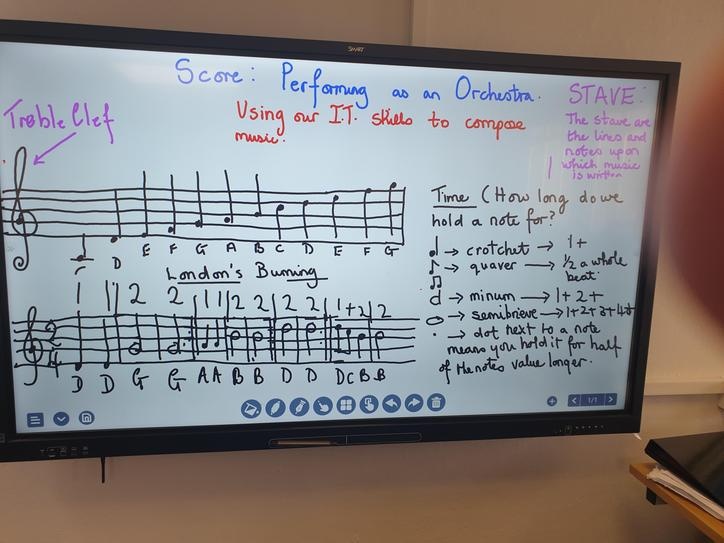 SMART
Score: Performing as an Orchestra.
Using our I.T. skills to compose
music.
Treble Clef
STAVE:
The stave are
the lines and
notes upon
which music
is written
C D E F G A B C D E F G
London's Burning
1 1 2 2 1 1 2 2 2 2 1 + 2 2
2
4
D D G G A A B B D D D C B B
Time (How long do we
hold a note for?
→ crotchet → 1+
→ quaver → 1/2 a whole
beat.
→ minum → 1+2+
→ semibrieve → 1+2+3+4+
. → dot next to a note
means you hold it for half
of the notes value longer.
1/1